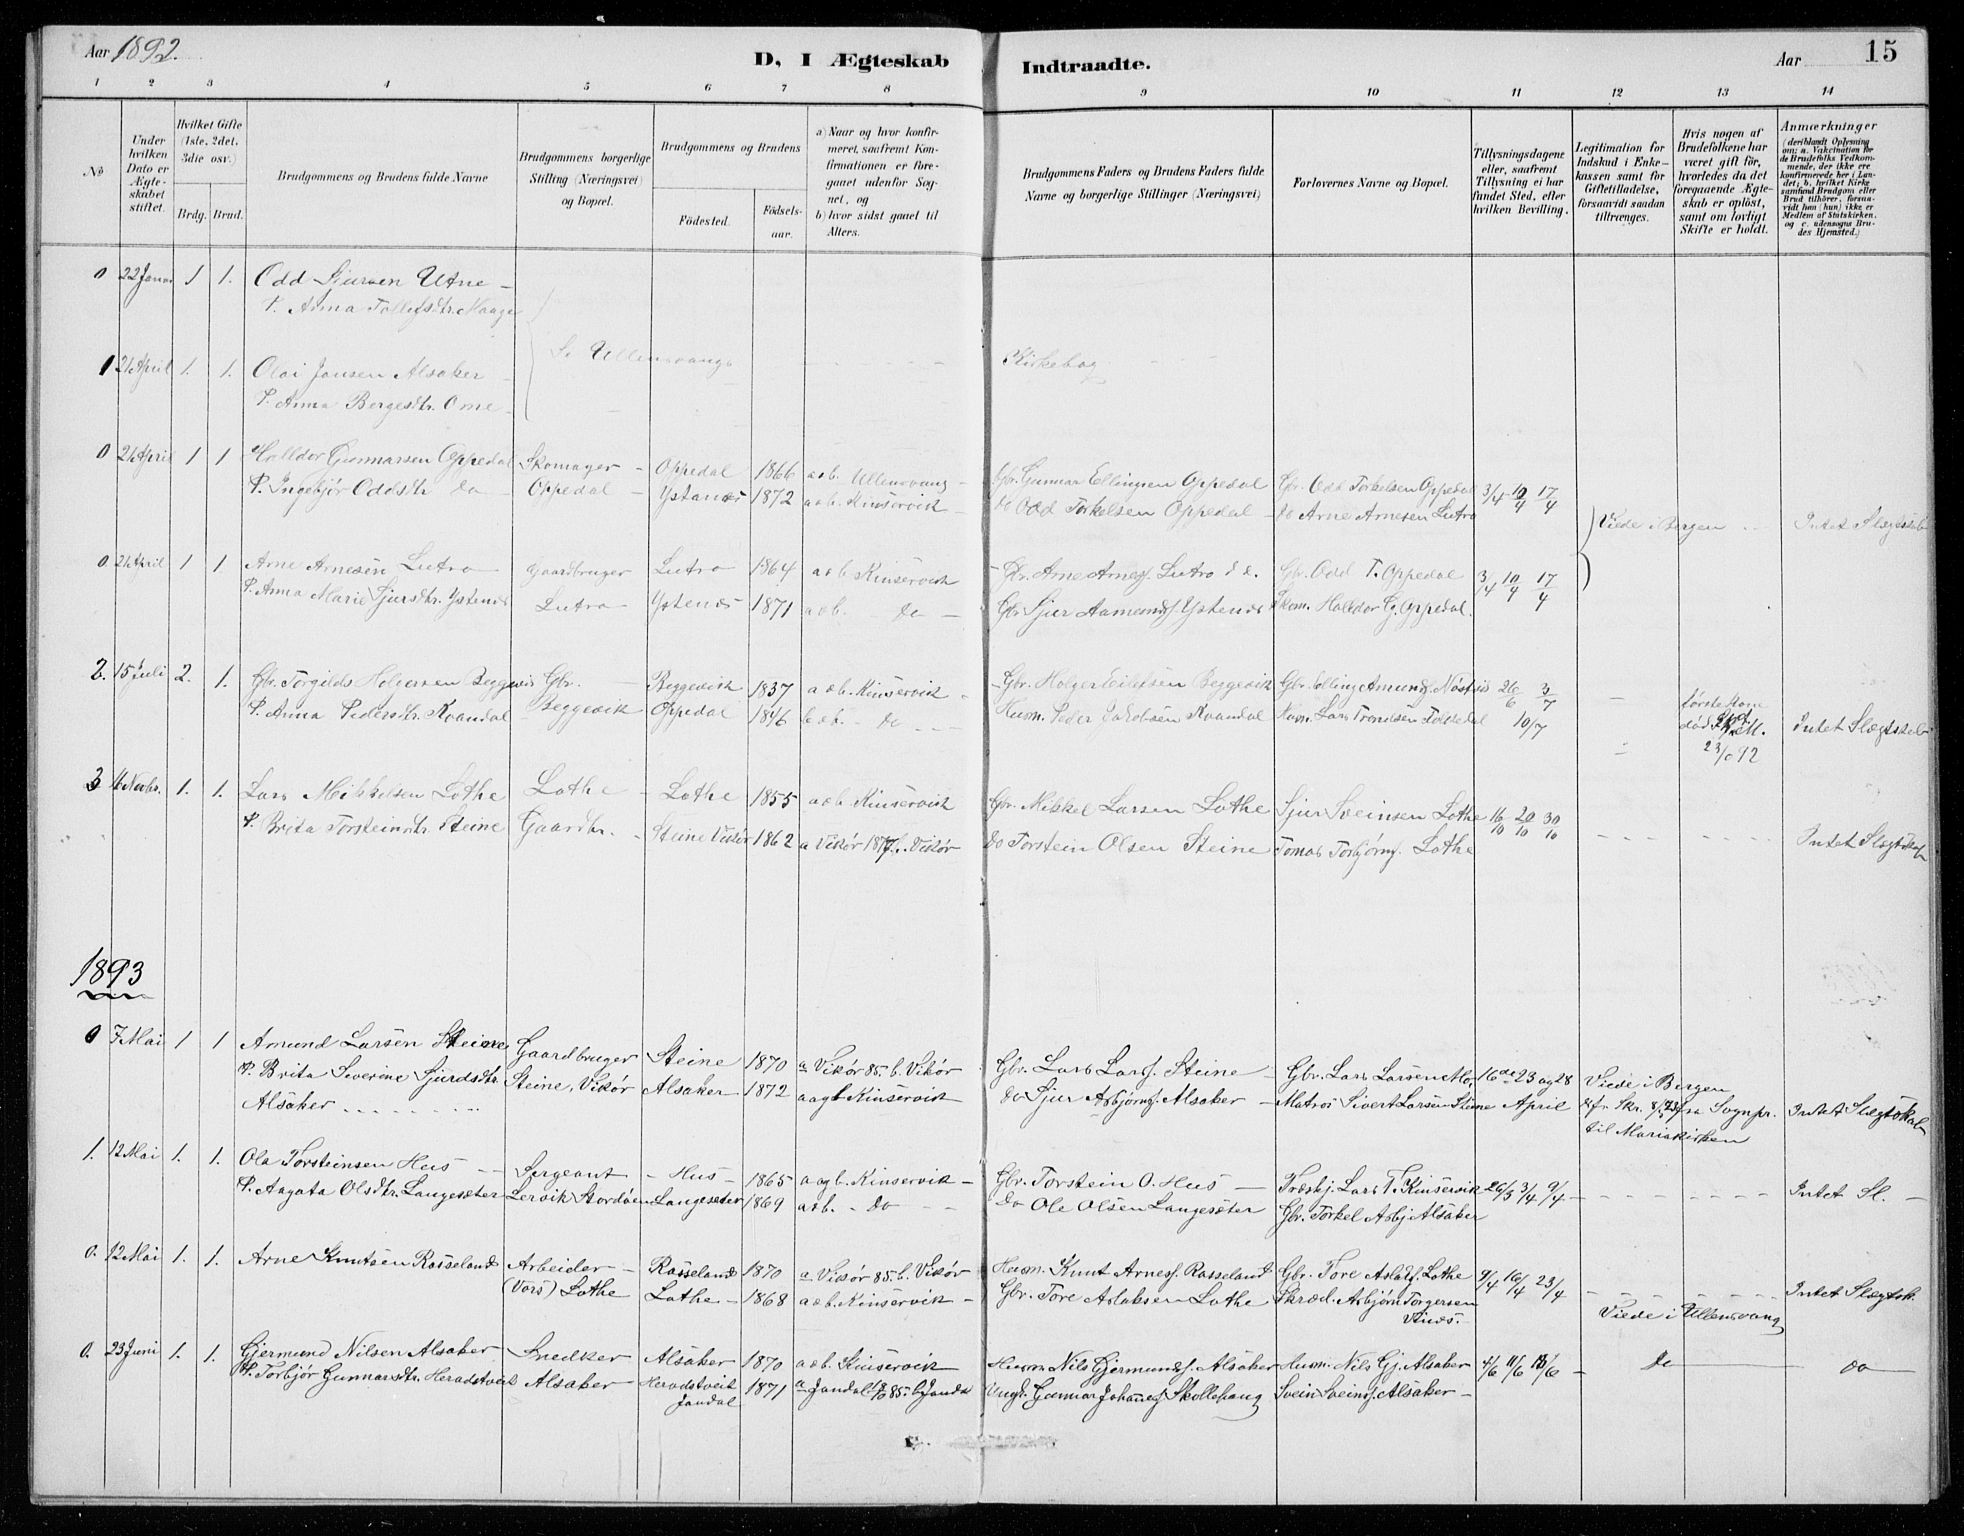 Aar 1892.
D, I Ægteskab
Indtraadte.
Aar
15
1 2 3 4 5 6 7 8 9 10 11 12 13 14
No
Under hvilken Dato er Ægteskabet stiftet.
Hvilket Gifte (1ste, 2det, 3die osv.)
Brdg. Brud.
Brudgommens og Brudens fulde Navne
Brudgommens borgerlige Stilling (Næringsvei) og Bopæl.
Brudgommens og Brudens
Fødested.
Fødselsaar.
a) Naar og hvor konfirmeret, saafremt Konfirmationen er foregaaet udenfor Sognet, og
b) hvor sidst gaaet til Alters.
Brudgommens Faders og Brudens Faders fulde Navne og borgerlige Stillinger (Næringsvei)
Forlovernes Navne og Bopæl.
Tillysningsdagene eller, saafremt Tillysning ei har fundet Sted, efter hvilken Bevilling.
Legitimation for Indskud i Enkekassen samt for Giftetilladelse, forsaavidt saadan tiltrænges.
Hvis nogen af Brudefolkene har været gift før, hvorledes da det foregaaende Ægteskab er opløst, samt om lovligt Skifte er holdt.
Anmærkninger (deriblandt Oplysning om: a. Vakcination for de Brudefolks Vedkommende, der ikke ere konfirmerede her i Landet; b. hvilket Kirkesamfund Brudgom eller Brud tilhører, forsaavidt han (hun) ikke er Medlem af Statskirken, og c. udensogns Brudes Hjemsted.)
0 22 Janua 1 1. Odd Sjursen Utne
P. Anna Tollefsdtr. Haaga
Se Ullensvangs Kirkebog
1 21 April 1. 1. Olai Jansen Alsaker
P. Anna Bergesdtr. Ome
0 21 April 1 1 Halldor Gunnarsen Oppedal Skomager Oppedal 1866 a o b. Ullensvang Gbr. Gunnar Ellingsen Oppedal Gbr. Odd Torkelsen Oppedal 3/4 10/4 17/4
P. Ingebjør Oddsdtr do Oppedal Ystanæs 1872 a o b. Kinservik do Odd Torkelsen Oppedal do Arne Arnesen Lutro
Viede i Bergen Intet Slægtskab
0 21 April 1 1. Arne Arnesen Lutro Gaardbruger Lutro 1864 a o b Kinservik Gbr. Arne Arnes. Lutro d.e. Gbr. Odd T. Oppedal 3/4 10/4 17/4
P. Anna Marie Sjursdtr. Ystenes Lutro Ystenes 1871 a o b. do Gbr. Sjur Aamunds. Ystenes Skom. Halldor G. Oppedal.
2. 15 Juli 2. 1. Gbr. Torgilds Holgersen Beggevik Gbr. Beggevik 1837 a o b. Kinservik Gbr. Holger Eilefsen Beggevik Gbr. Elling Amunds. 26/6 3/7
P. Anna Pedersdtr. Kvandal Beggevik Oppedal 1846 do Husm. Peder Jakobsen Kvandal Husm. Lars Trondsen Folkedal 10/7
første Kone død
Intet Slægtskab
3 Novbr. 1. 1. Lars Mikkelsen Lothe Lothe Lothe 1855 a o b. Kinservik Gbr. Mikkel Larsen Lothe Sjur Sveinsen Lothe 16/10 20/10 30/10
P. Brita Torsteinsdtr. Steine Gaardbr. Steine Vikør 1862 a Vikør 1877 b. Vikør do Torstein Olsen Steine Tomas Torbjørns. Lothe
Intet Slægtskab
1893
0 7 Mai 1 1 Amund Larsen Steine Gaardbruger Steine 1870 a Vikør 85. b. Vikør Gbr. Lars Lars. Steine Gbr. Lars Larsen Mo, 16de 23 og 28 Viede i Bergen
P. Brita Severine Sjurdsdtr. Steine, Vikør Alsaker 1872 a og b Kinservik do Sjur Asbjørns. Alsaker Matros Sivert Larsen Steine April cfr. Skr. 8/5 93 fra Sognpr. Intet Slægtskab
Alsaker til Mariakirken
1. 12 Mai 1. 1. Ola Torsteinsen Hus Sergeant Hus 1865 a og b. Kinservik Gbr. Torstein O. Hus Træshj. Lars T. Kinservik 26/3 3/4 9/4 Intet Sl.
P. Aagata Olsdtr. Langesæter Lervik Stordøen Langesæter 1869 a o b. do do Ole Olsen Langesæter Gbr. Torkel Asbj. Alsaker
0. 12 Mai 1. 1. Arne Knutsen Rosseland Arbeider Rosseland 1870 a. Vikør 85. b. Vikør Husm. Knut Arnes. Rosseland Gbr. Tore Aslaks. Lothe 9/4 16/4 23/4 Intet Slægtsk.
(Vors) Lothe Lothe 1868 a o b. Kinservik Gbr. Tore Aslaksen Lothe Skræd. Asbjørn Torgersen
Viede i Ullensvang
0. 23 Juni 1. 1. Gjermund Nilsen Alsaker Snedker Alsaker 1870 a o b. Kinservik Husm. Nils Gjermunds. Alsaker Husm. Nils Gj. Alsaker 4/6 11/6 18/6 do do
P. Torbjør Gunnarsdtr. Heradstveit Alsaker Heradstveit Jondal 1871 a Jondal 85. b. Jondal Ungk. Gunnar Johannes. Skollehaug Svein Sveins. Alsaker